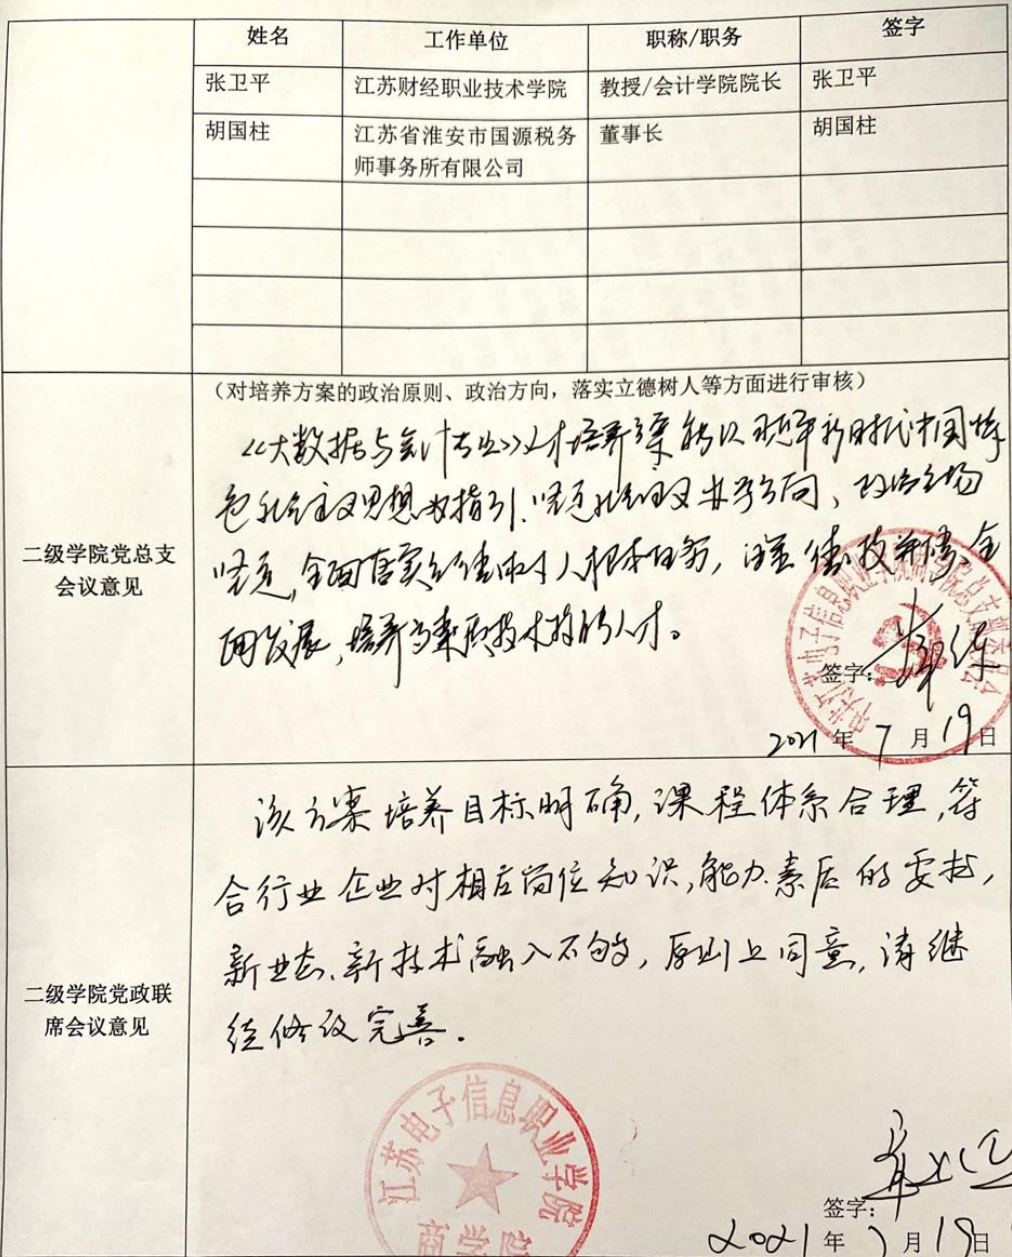 姓名 工作单位 职称/职务 签字
张卫平 江苏财经职业技术学院 教授/会计学院院长 张卫平
胡国柱 江苏省淮安市国源税务 董事长 胡国柱
师事务所有限公司
(对培养方案的政治原则、政治方向，落实立德树人等方面进行审核)
《大数据与会计专业》人才培养方案能以习近平新时代中国特
色社会主义思想为指引，坚定社会主义办学方向、政治立场
坚定，全面落实立德树人根本任务，注重德技并修、全
面发展，培养高素质技术技能人才。
二级学院党总支
会议意见
签字:
2021年7月19日
该方案培养目标明确，课程体系合理，符
合行业企业对相应岗位知识，能力、素质的要求，
新业态、新技术融入不够，原则上同意，请继
续修改完善。
二级学院党政联
席会议意见
江苏电子信息职业学院
商学院
签字:
2021年7月19日